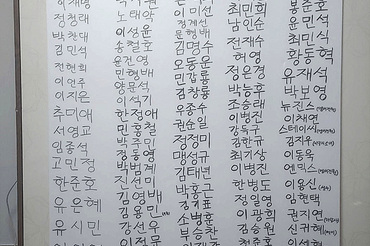 이재명
정청래
박찬대
김민석
전현희
이언주
이지은
추미애
서영교
임종석
고민정
한준호
유은혜
유시민
노태악
이성윤
송철호
윤건영
민형배
양문석
이석기
한정애
민홍철
박주민
정동영
박범계
진선미
김영배
김용민
강선우
이정문
이미선
정계선
문형배
김명수
오동운
민갑룡
김창룡
우종수
권순일
정정미
맹성규
김태년
박홍근
김기표
소병훈
부승찬
최민희
남인순
전재수
허영
정은경
박능후
조승래
이병진
강득구
김한규
최기상
이병진
한병도
정일영
이광희
김승원
천준호
봉준호
윤민석
최민식
황동혁
유재석
박보영
뉴진스
이채연
스테이씨
김지우
이동욱
엔믹스
이용신
임현택
권지연
신규혜